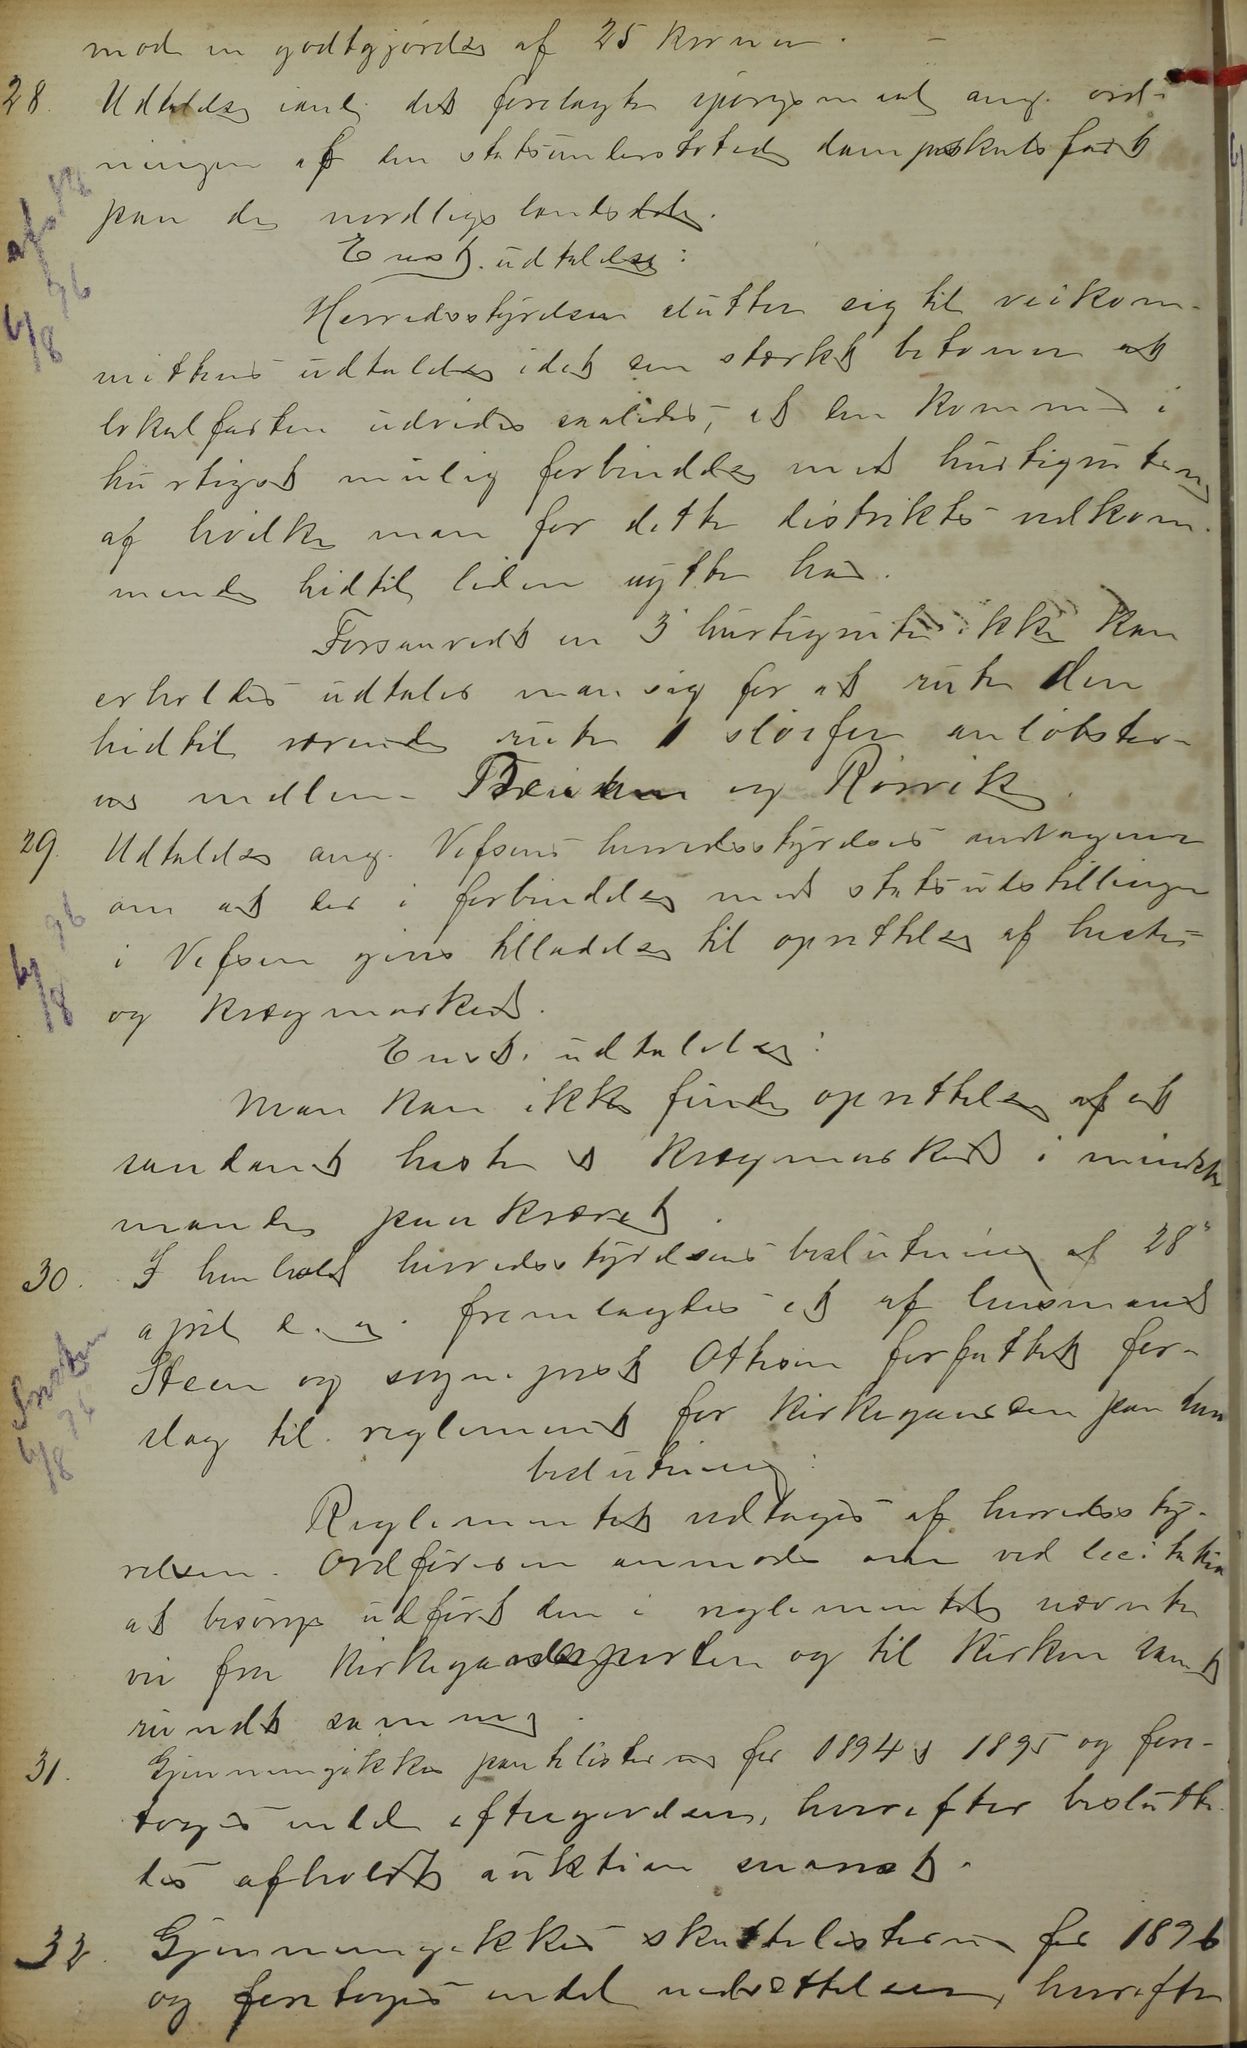 mod en godtgjørelse af 25 kroner.
28. Udtalelse i anl. det forelagte spørgsmaal ang. ord-
ningen af den statsunderstøttede dampskibsfart
paa de nordlige landsdele.
Enst. udtalelse:
Herredsstyrelsen slutter sig til veikom-
mitteens udtalelse idet den stærkt betoner at
lokalfarten udvides saaledes, at den kommer i
hurtigst mulig forbindelse med hurtigruten
af hvilke man for dette distrikts vedkom-
mende hidtil liden nytte har.
Forsaavidt en 3 hurtigrute ikke kan
erholdes udtaler man sig for at rute den
hidtil værende rute 1 sløifer anløbster-
ne mellem og Rørvik.
29. Udtalelse ang. Vefsens herredsstyrelses andragende
om at der i forbindelse med statsudstillingen
i Vefsen gives tilladelse til oprettelse af heste-
og kvægmarked.
Enst. udtalelse:
Man kan ikke finde oprettelse af et
saadant heste & kvægmarked i mindste
maade paakrævet.
30. I henhold herredsstyrelsens beslutning af 28"
april d. a. fremlagdes et af lensmand
Steen og sogneprest Ottesen forfattet for-
slag til reglement for kirkegaarden paa
beslutning:
Reglementet vedtages af hereds sty-
relsen. Ordføreren anmodes om ved licitation
at besørge udført den i reglementet nævnte
vei fra kirkegaardsporten og til kirken samt
rundt samme.
31. Gjennemgikkes paa restlisterne for 1894 & 1895 og fore-
toges endel eftergivelser, hvorefter beslutte-
des afholdt auktion snarest.
32. Gjennemgikkes skattelisterne for 1896
og foretoges endel nedsættelser, hvorefter
afs
6/8 96
6/8 96
6/8 96